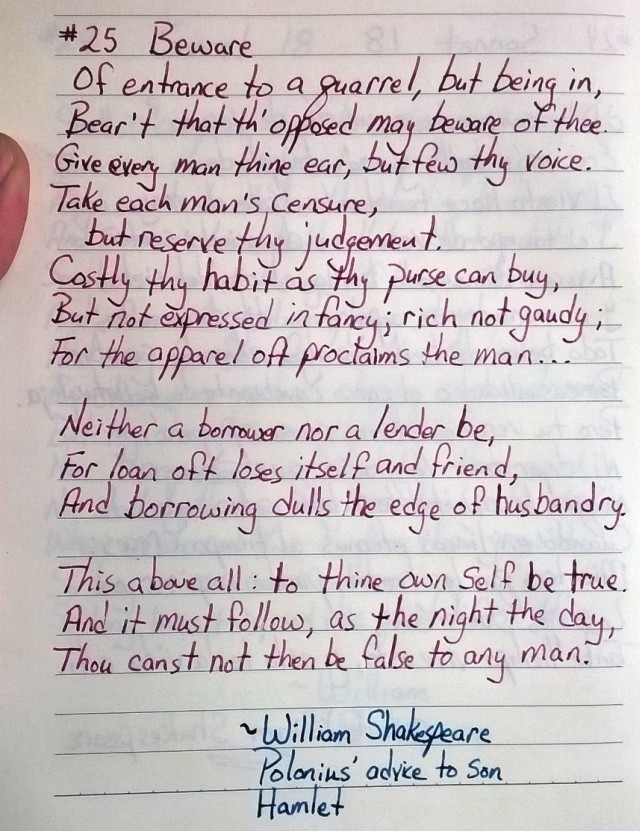 #25 Beware
Of entrance to a quarrel, but being in,
Bear't that th' opposed may beware of thee.
Give every man thine ear, but few thy voice.
Take each man's censure,
but reserve thy judgement.
Costly thy habit as thy purse can buy,
But not expressed in fancy; rich not gaudy;
For the apparel oft proclaims the man...
Neither a borrower nor a lender be,
For loan oft loses itself and friend,
And borrowing dulls the edge of husbandry.
This above all: to thine own Self be true.
And it must follow, as the night the day,
Thou canst not then be false to any man.
~William Shakespeare
Polonius' advice to son
Hamlet